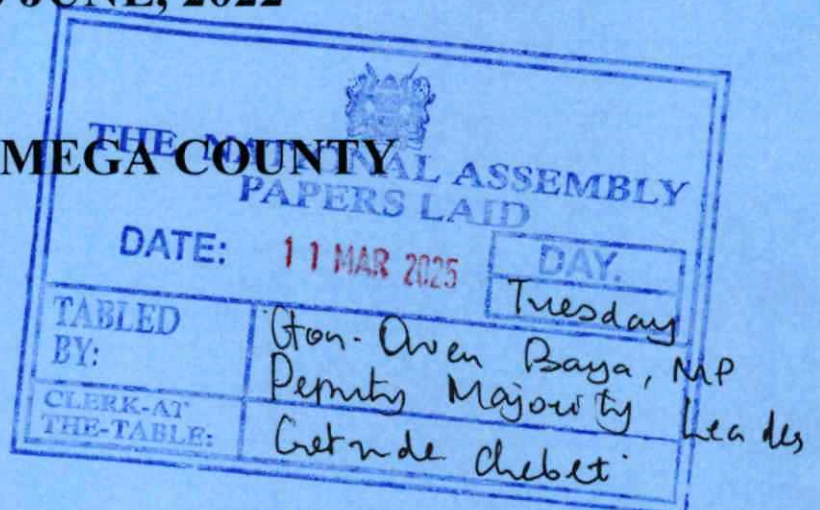 JUNE, 2022
MEGA COUNTY
THE NATIONAL ASSEMBLY
PAPERS LAID
DATE: 11 MAR 2025
DAY.
Tuesday
TABLED BY:
Hon. Owen Baya, MP
Deputy Majority Leader
CLERK-AT THE-TABLE:
Getrude Chebet